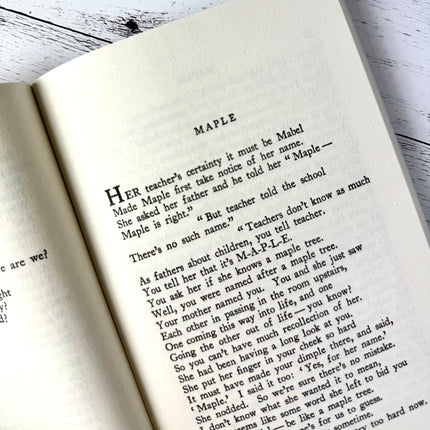 e are we?
ht
y?
d?
MAPLE
HER teacher's certainty it must be Mabel
Made Maple first take notice of her name.
She asked her father and he told her "Maple—
Maple is right."
"But teacher told the school
There's no such name."
"Teachers don't know as much
As fathers about children, you tell teacher.
You tell her that it's M-A-P-L-E.
You ask her if she knows a maple tree.
Well, you were named after a maple tree.
Your mother named you. You and she just saw
Each other in passing in the room upstairs,
One coming this way into life, and one
Going the other out of life—you know?
So you can't have much recollection of her.
She had been having a long look at you.
She put her finger in your cheek so hard
It must have made your dimple there, and said,
'Maple.' I said it too: 'Yes, for her name.'
She nodded. So we're sure there's no mistake.
I don't know what she wanted it to mean,
seems like some word she left to bid you
be like a maple tree.
for us to guess.
sometime.
too hard now.